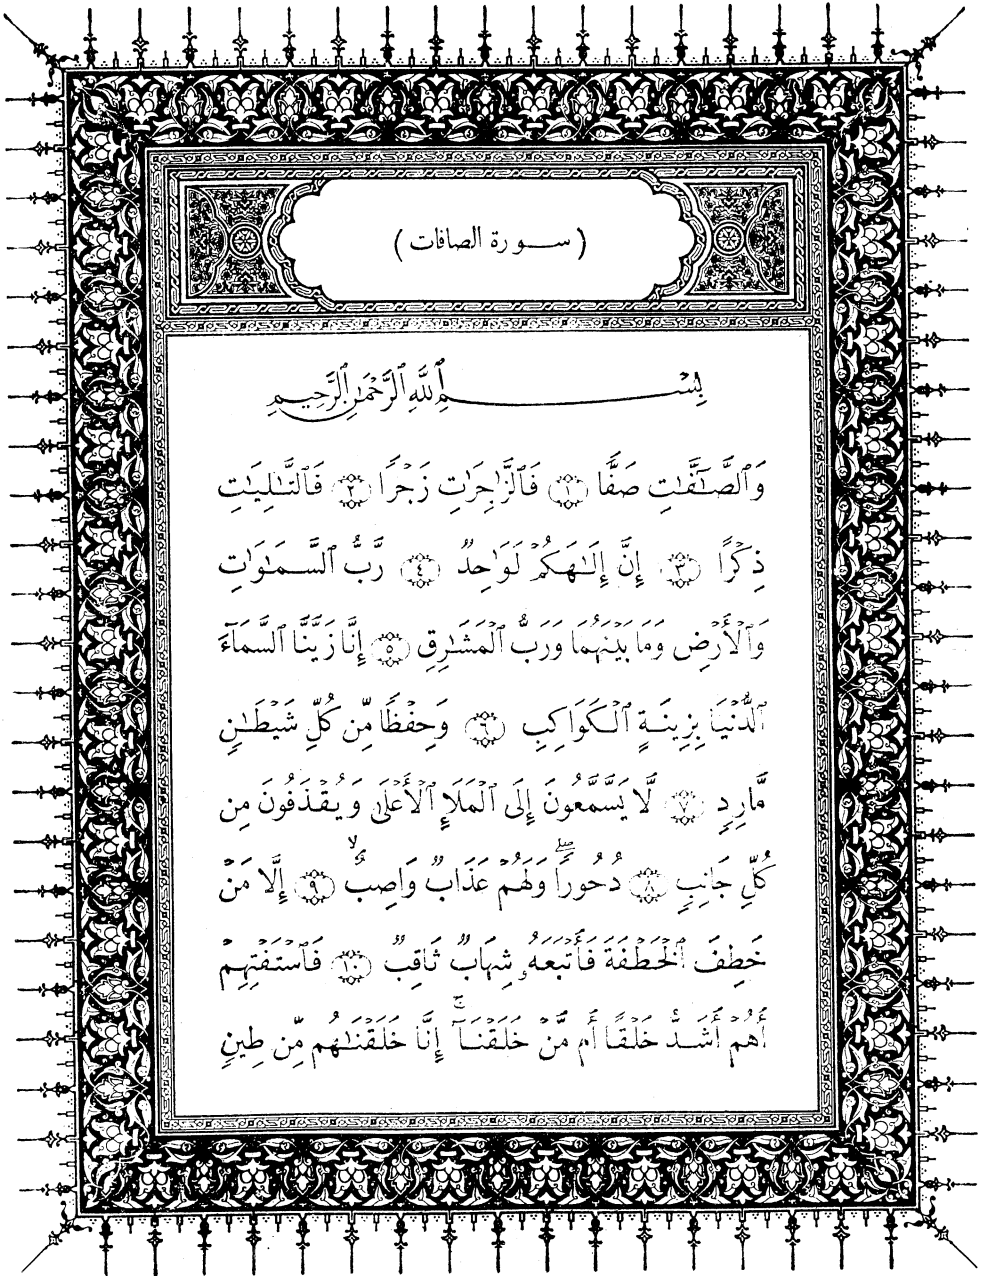 ( ســورة الصافات )
بِسْمِ ٱللَّهِ ٱلرَّحْمَٰنِ ٱلرَّحِيمِ
وَٱلصَّـٰٓفَّـٰتِ صَفًّا ١ فَٱلزَّٰجِرَٰتِ زَجْرًا ٢ فَٱلتَّـٰلِيَـٰتِ
ذِكْرًا ٣ إِنَّ إِلَـٰهَكُمْ لَوَٰحِدٌ ٤ رَّبُّ ٱلسَّمَـٰوَٰتِ
وَٱلْأَرْضِ وَمَا بَيْنَهُمَا وَرَبُّ ٱلْمَشَـٰرِقِ ٥ إِنَّا زَيَّنَّا ٱلسَّمَآءَ
ٱلدُّنْيَا بِزِينَةٍ ٱلْكَوَاكِبِ ٦ وَحِفْظًا مِّن كُلِّ شَيْطَـٰنٍ
مَّارِدٍ ٧ لَّا يَسَّمَّعُونَ إِلَى ٱلْمَلَإِ ٱلْأَعْلَىٰ وَيُقْذَفُونَ مِن
كُلِّ جَانِبٍ ٨ دُحُورًاۖ وَلَهُمْ عَذَابٌ وَاصِبٌ ۙ ٩ إِلَّا مَنْ
خَطِفَ ٱلْخَطْفَةَ فَأَتْبَعَهُۥ شِهَابٌ ثَاقِبٌ ١٠ فَٱسْتَفْتِهِمْ
أَهُمْ أَشَدُّ خَلْقًا أَم مَّنْ خَلَقْنَآۚ إِنَّا خَلَقْنَـٰهُم مِّن طِينٍ